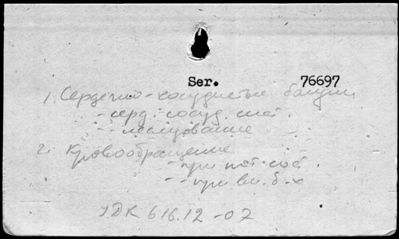 Ser. 76697
1. Сердечно-сосудистые
- серд.-сосуд. сист.
- исследование
2. Кровообращение
- - при пат. сост.
- - при вн. б-х
УДК 616.12-07